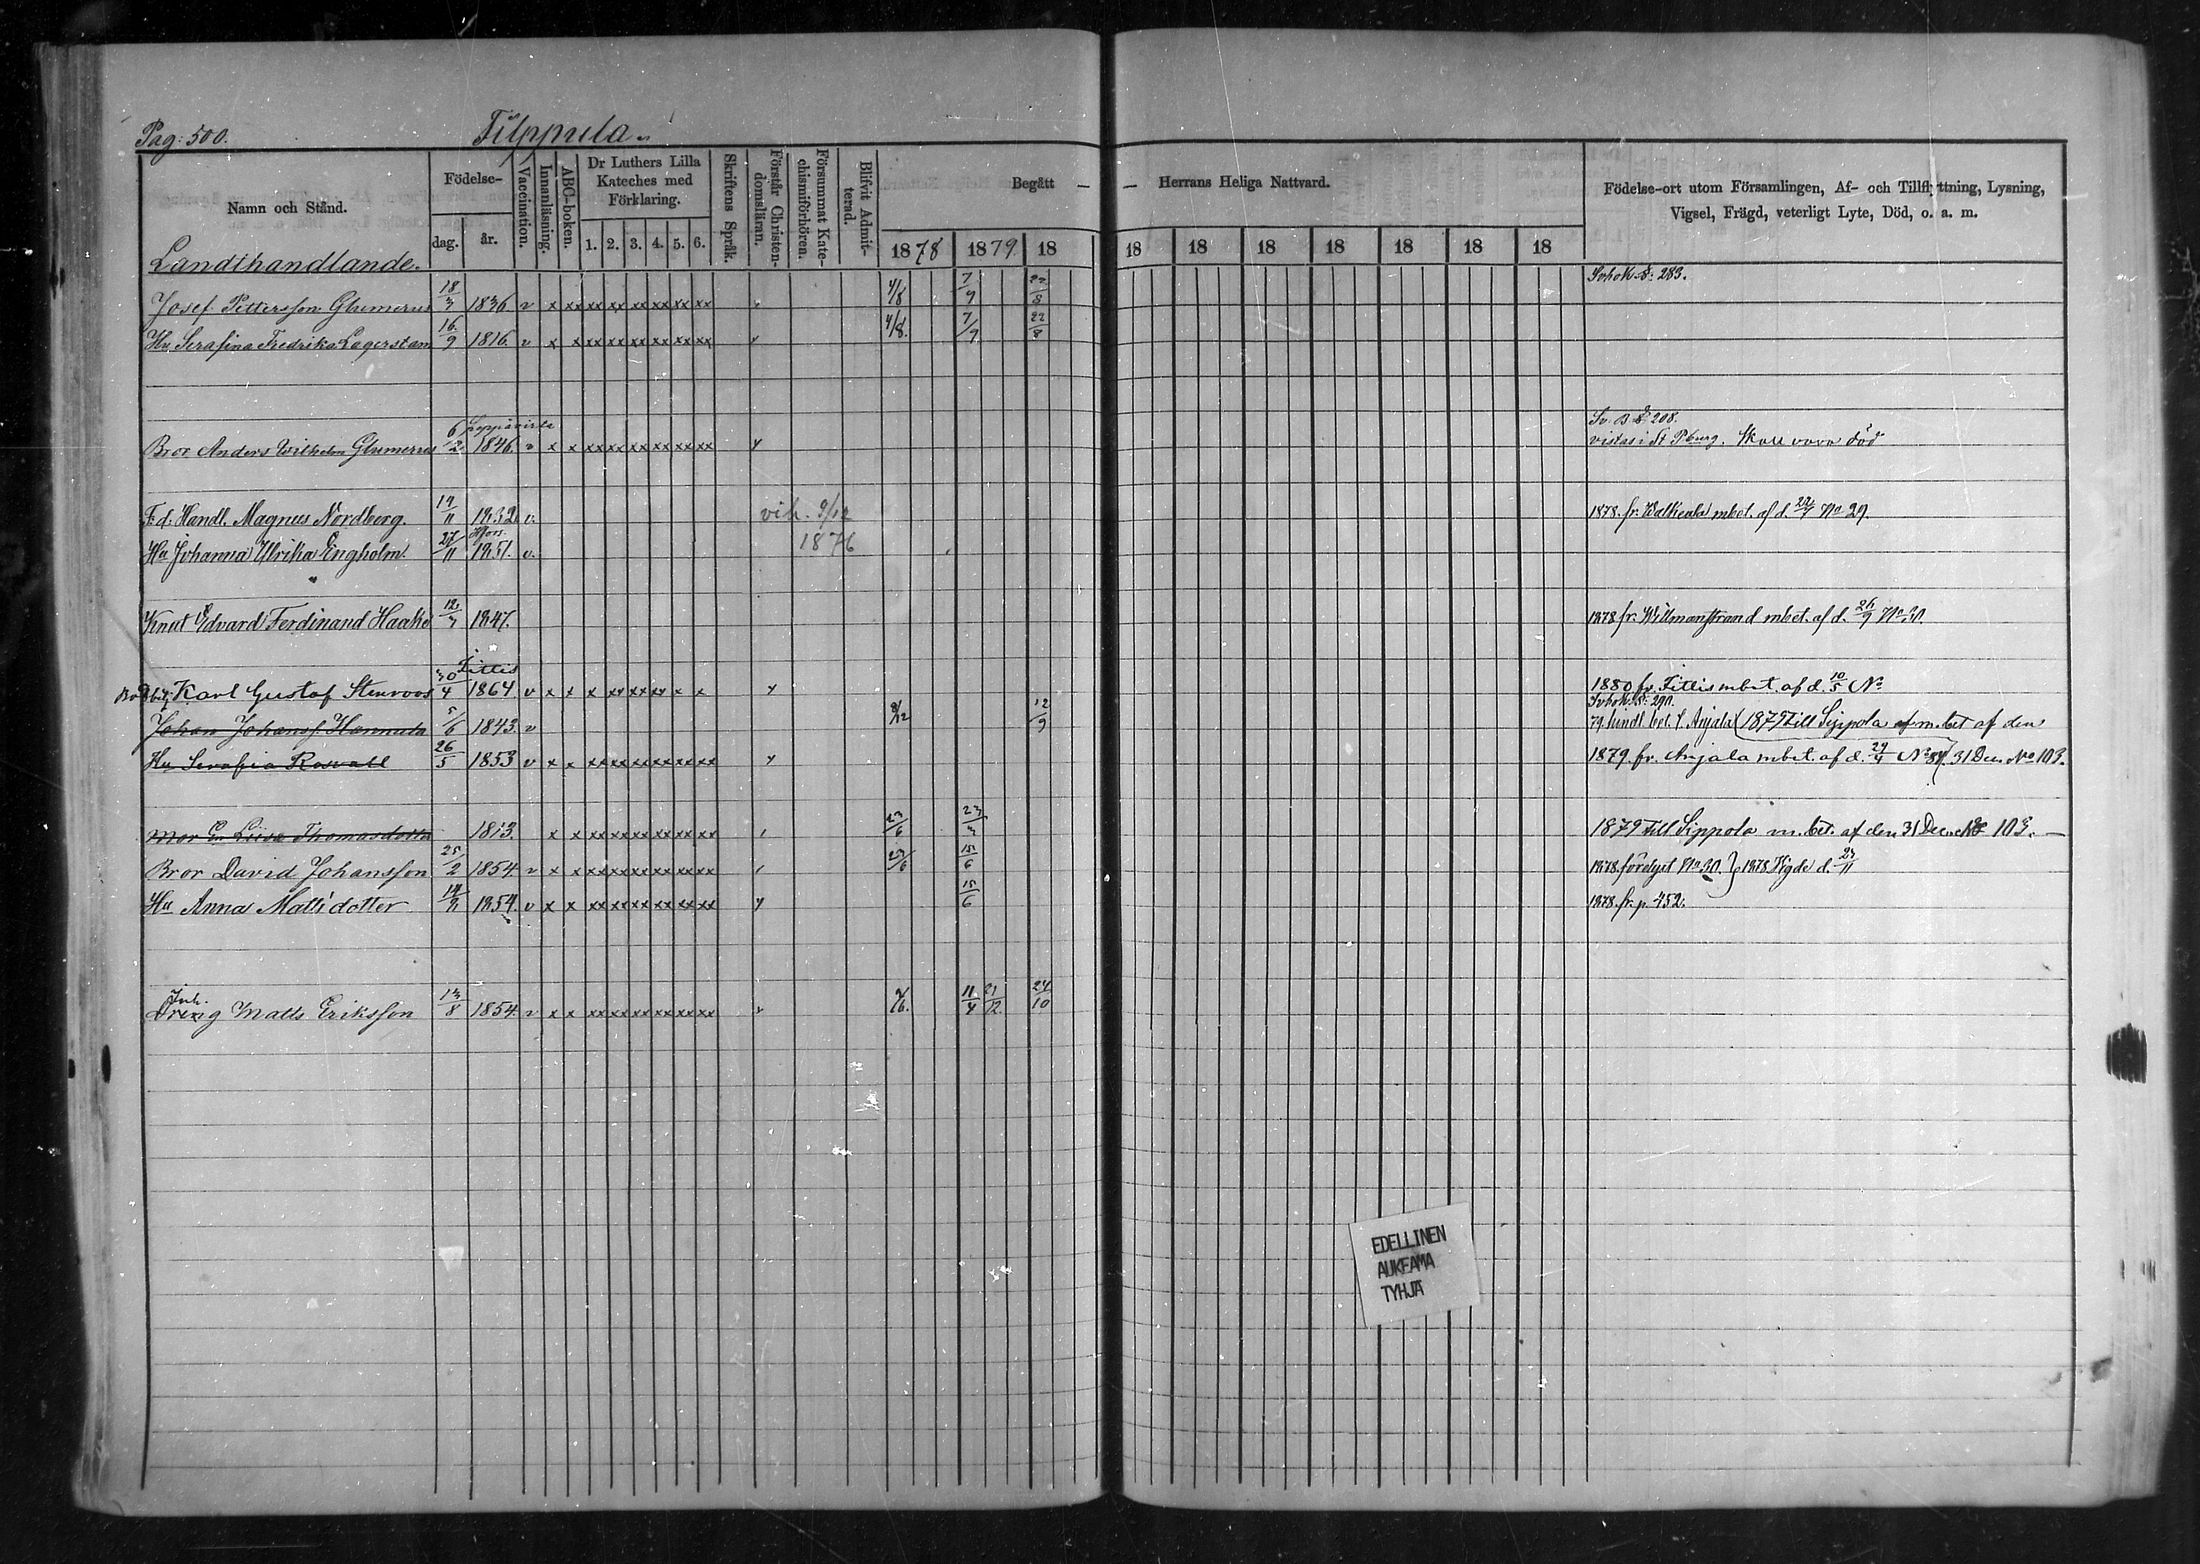 Pag: 500. Filppula.
Namn och Stånd. Födelse- dag. år. Vaccination. Innanläsning. ABC-boken. Dr Luthers Lilla Kateches med Förklaring. 1. 2. 3. 4. 5. 6. Skriftens Språk. Förstår Christendomsläran. Försummat Katechismiförhören. Blifvit Admitterad. Begått — — Herrans Heliga Nattvard. Födelse-ort utom Församlingen, Af- och Tillflyttning, Lysning,
Vigsel, Frägd, veterligt Lyte, Död, o. a. m.
1878 1879 18 18 18 18 18 18 18 18
Landthandlande.
Josef Pettersson Glumerus 18/3 1836 v x xx xx xx xx xx xx xx 4/8 7/9 22/8 283.
Hu Serafina Fredrika Lagerstam 16/9 1816 v x x xx xx xx xx xx xx 4/8. 7/9 22/8
Bror Anders Wilhelm Glumerus 6/2 Leppävirta 1846. v x x xx xx xx xx xx xx 208.
vistas i St Pburg. Skall vara död
F.d. Handl. Magnus Nordberg. 1832 v. vih. 9/12 1878. fr. Walkeala mbet. af d. No 29.
Hu Johanna Ulrika Engholm. 27/11 1851. v. 1876
Knut Edvard Ferdinand Haake 1847. 1878 fr. Willmanstrand mbet. af d. 26/9 No 30.
Karl Gustaf Stenroos 30/4 Tittis 1864 v x x x xx xx xx x x 1880 fr. Tittis mbet. af d. 10/5 No
290.
Johan Johanss. Hannula 5/6 1843. v 8/12 12/9 1879 till Sippola m. bet af den
Hu Serafia Roswall 26/5 1853 v x x xx xx xx xx xx xx 1879. fr. Anjala mbet. af d. 31 Dec. No 103.
Mor Liisa Thomasdotter 1813. x x xx xx xx xx xx xx 23/6 23/3 1879 till Sippola m. bet. af den 31 Dec. No 103. —
Bror David Johansson 25/2 1854 v x x xx xx xx xx xx xx 23/6 15/6 1878. förelyst No 30. } 1878 Vigde d. 23/11
Hu Anna Matts'dotter 1854. v x x xx xx xx xx xx xx 15/6 1878. fr. p. 452.
Inh.
Dreng Matts Eriksson 13/8 1854. v x x xx xx xx xx xx xx 11/4 21/12 24/10
EDELLINEN
AUKEAMA
TYHJÄ